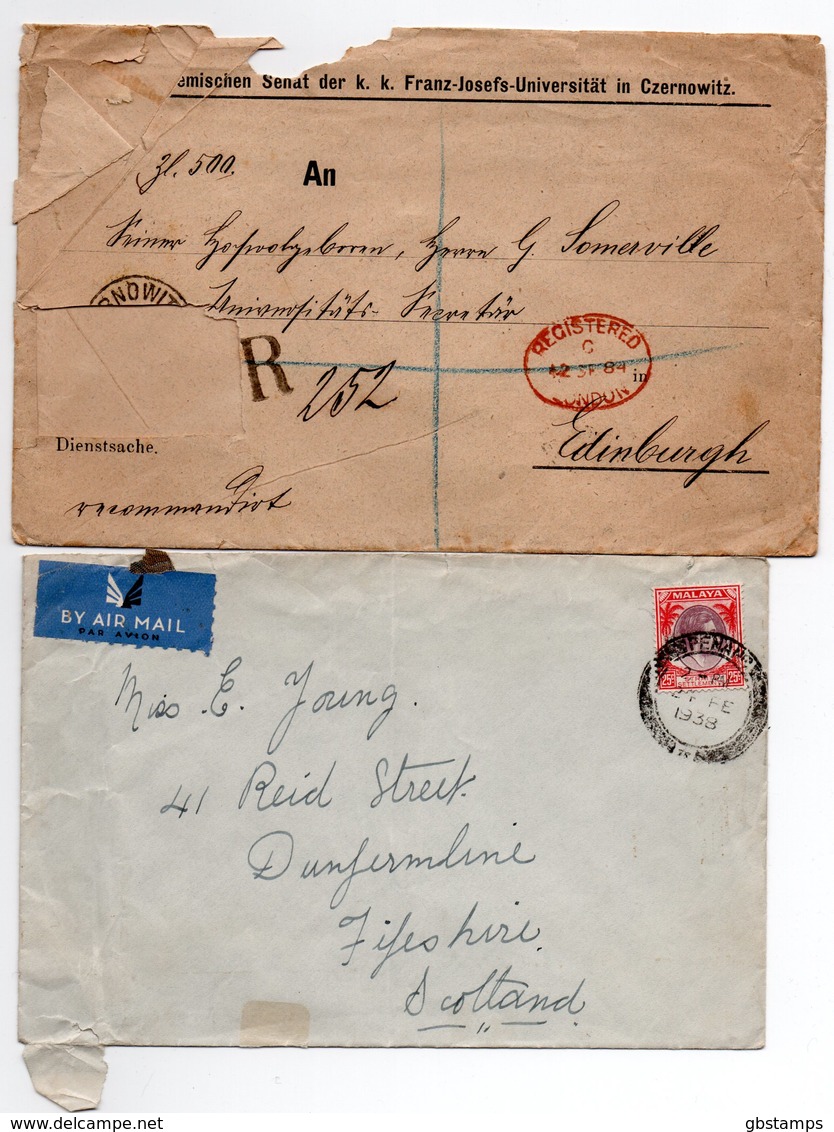 emischen Senat der k. k. Franz-Josefs-Universität in Czernowitz.
Zl. 500.
An
Seiner Hochwolgeboren, Herrn G. Somerville
Universitäts-Secretär
RNOWIT
R
252
REGISTERED
C
12 SP 84
LONDON
in
Edinburgh
Dienstsache.
recommandirt
BY AIR MAIL
PAR AVION
MALAYA
25c
25c
SETTLEMENTS
PENANG
FE
1938
Miss. E. Young.
41 Reid Street
Dunfermline
Fifeshire.
Scotland
delcampe.net
gbstamps